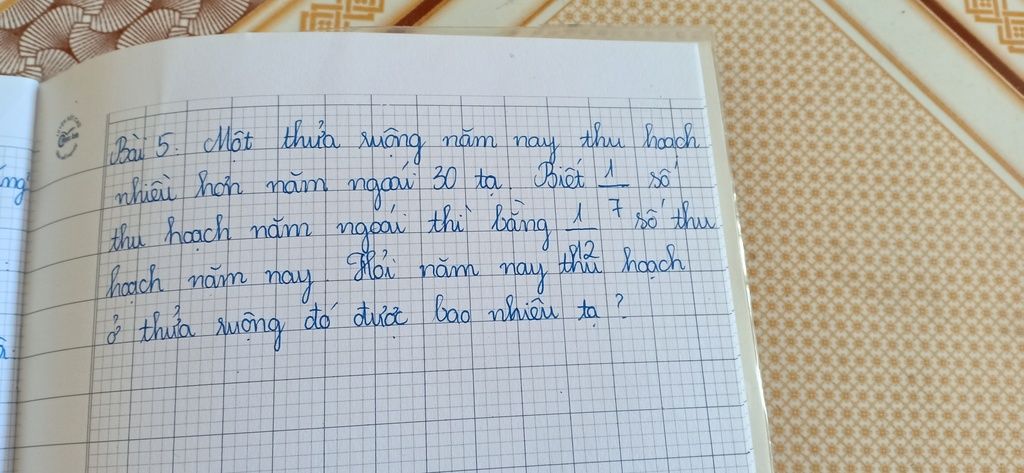 Bài 5. Một thửa ruộng năm nay thu hoạch
nhiều hơn năm ngoái 30 tạ. Biết 1/7 số
thu hoạch năm ngoái thì bằng 1/12 số thu
hoạch năm nay. Hỏi năm nay thu hoạch
ở thửa ruộng đó được bao nhiêu tạ?